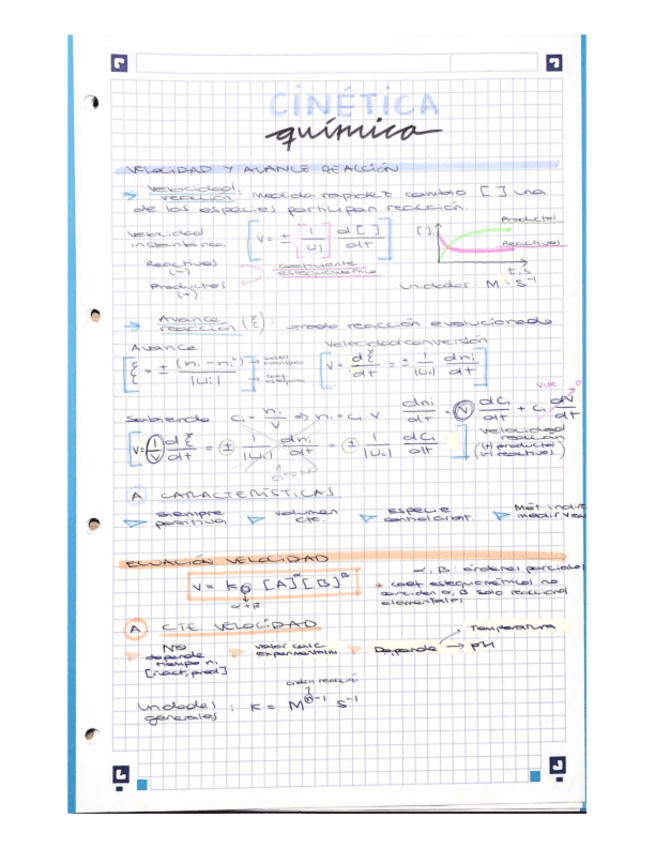 CINÉTICA
química
VELOCIDAD Y AVANCE REACCIÓN
→ Velocidad reacción: Medida rapidez cambio [ ] una
de las especies participan reacción.
Velocidad instantánea
V = ± 1/|υi| d[ ]/dt
[ ]
Productos
Reactivos
t, s
Reactivos (-)
Productos (+)
coeficiente estequiométrico
unidades M · s⁻¹
→ Avance reacción (ξ): grado reacción evolucionado
Avance
Velocidad conversión
ξ = ± (ni - ni°) / |υi|
V = dξ/dt = ± 1/|υi| dni/dt
Sabiendo ci = ni/V ⇒ ni = ci V
dni/dt = V dci/dt + ci dV/dt
V cte.
0
V = 1/V dξ/dt = ± 1/|υi| dni/dt = ± 1/|υi| dci/dt
velocidad reacción
(+) productos
(-) reactivos
A CARACTERÍSTICAS
siempre positiva
volumen cte.
especie
Mét. indire
medir
ECUACIÓN VELOCIDAD
V = k [A]^α [B]^β
α + β
α, β: órdenes parciales
* coef estequiométricos no
coinciden α, β solo reacciones
elementales
A CTE VELOCIDAD
No depende tiempo ni [react, prod]
valor calc. experimentalm.
Depende
→ Temperatura
→ pH
orden reacción
Unidades generales : K = M^(n-1) s⁻¹